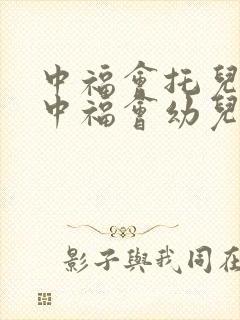 中福會托兒
中福會幼兒
影子與我同在